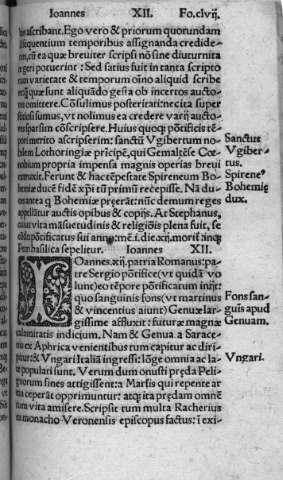 Ioannes XII. Fo.clvij.
bis ascribant. Ego vero & priorum quorundam
& sequentium temporibus assignanda credide-
rim, cū ea quæ breuiter scripsi nō sine diuturnita
te geri potuerint: Sed satius fuit in tanta scripto
rum varietate & temporum oīno aliquid scribe
re, q̄ quæ sunt aliquādo gesta ob incertos aucto-
res omittere. Cōsulimus posteritati: necita super
stitiosi sumus, vt nolimus ea credere varij aucto-
res sparsim cōscripsere. Huius quoq; pōtificis tē-
pori merito ascripserim: sanctū Vgibertum no-
bilem Lothoringiæ prīcipē, qui Gemaltēse Cœ
nobium propria impensa magnis operibus breui
extruxit. Ferunt & hac tēpestate Spireneum Bo-
hemiæ ducē fidē xp̄i tū primū recepisse. Nā du-
ces antea q Bohemiæ preerāt: nūc demum reges
appellātur auctis opibus & copijs. At Stephanus,
cuius vita māsuetudinis & religiōis plena fuit, se
dis suæ pōtificatus sui anno.
in basilica sepelitur. Ioannes XII.
IOannes.xij. patria Romanus: pa-
tre Sergio pōtifice (vt quidā vo
lunt) eo tēpore pōtificatum inijt:
quo sanguinis fons (vt martinus
& vincentius aiunt) Genuæ lar-
gissime adfluxit: futuræ magnæ
calamitatis indicium. Nam & Genua a Sarace-
nis ex Aphrica venientibus tum capitur ac diri-
pitur: & Vngari Italiā ingressi: lōge omnia ac la-
te populati sunt. Verum dum onusti pręda Peli-
gnorum fines attigissent: a Marsis qui repente ar
ma ceperāt opprimuntur: atq; ita prędam omnē
cum vita amisere. Scripsit tum multa Racherius
ex monacho Veronensis episcopus factus: ī exi-
Sanctus
Vgiber-
tus.
Spirene⁹
Bohemię
dux.
Fons san-
guis apud
Genuam.
Vngari.